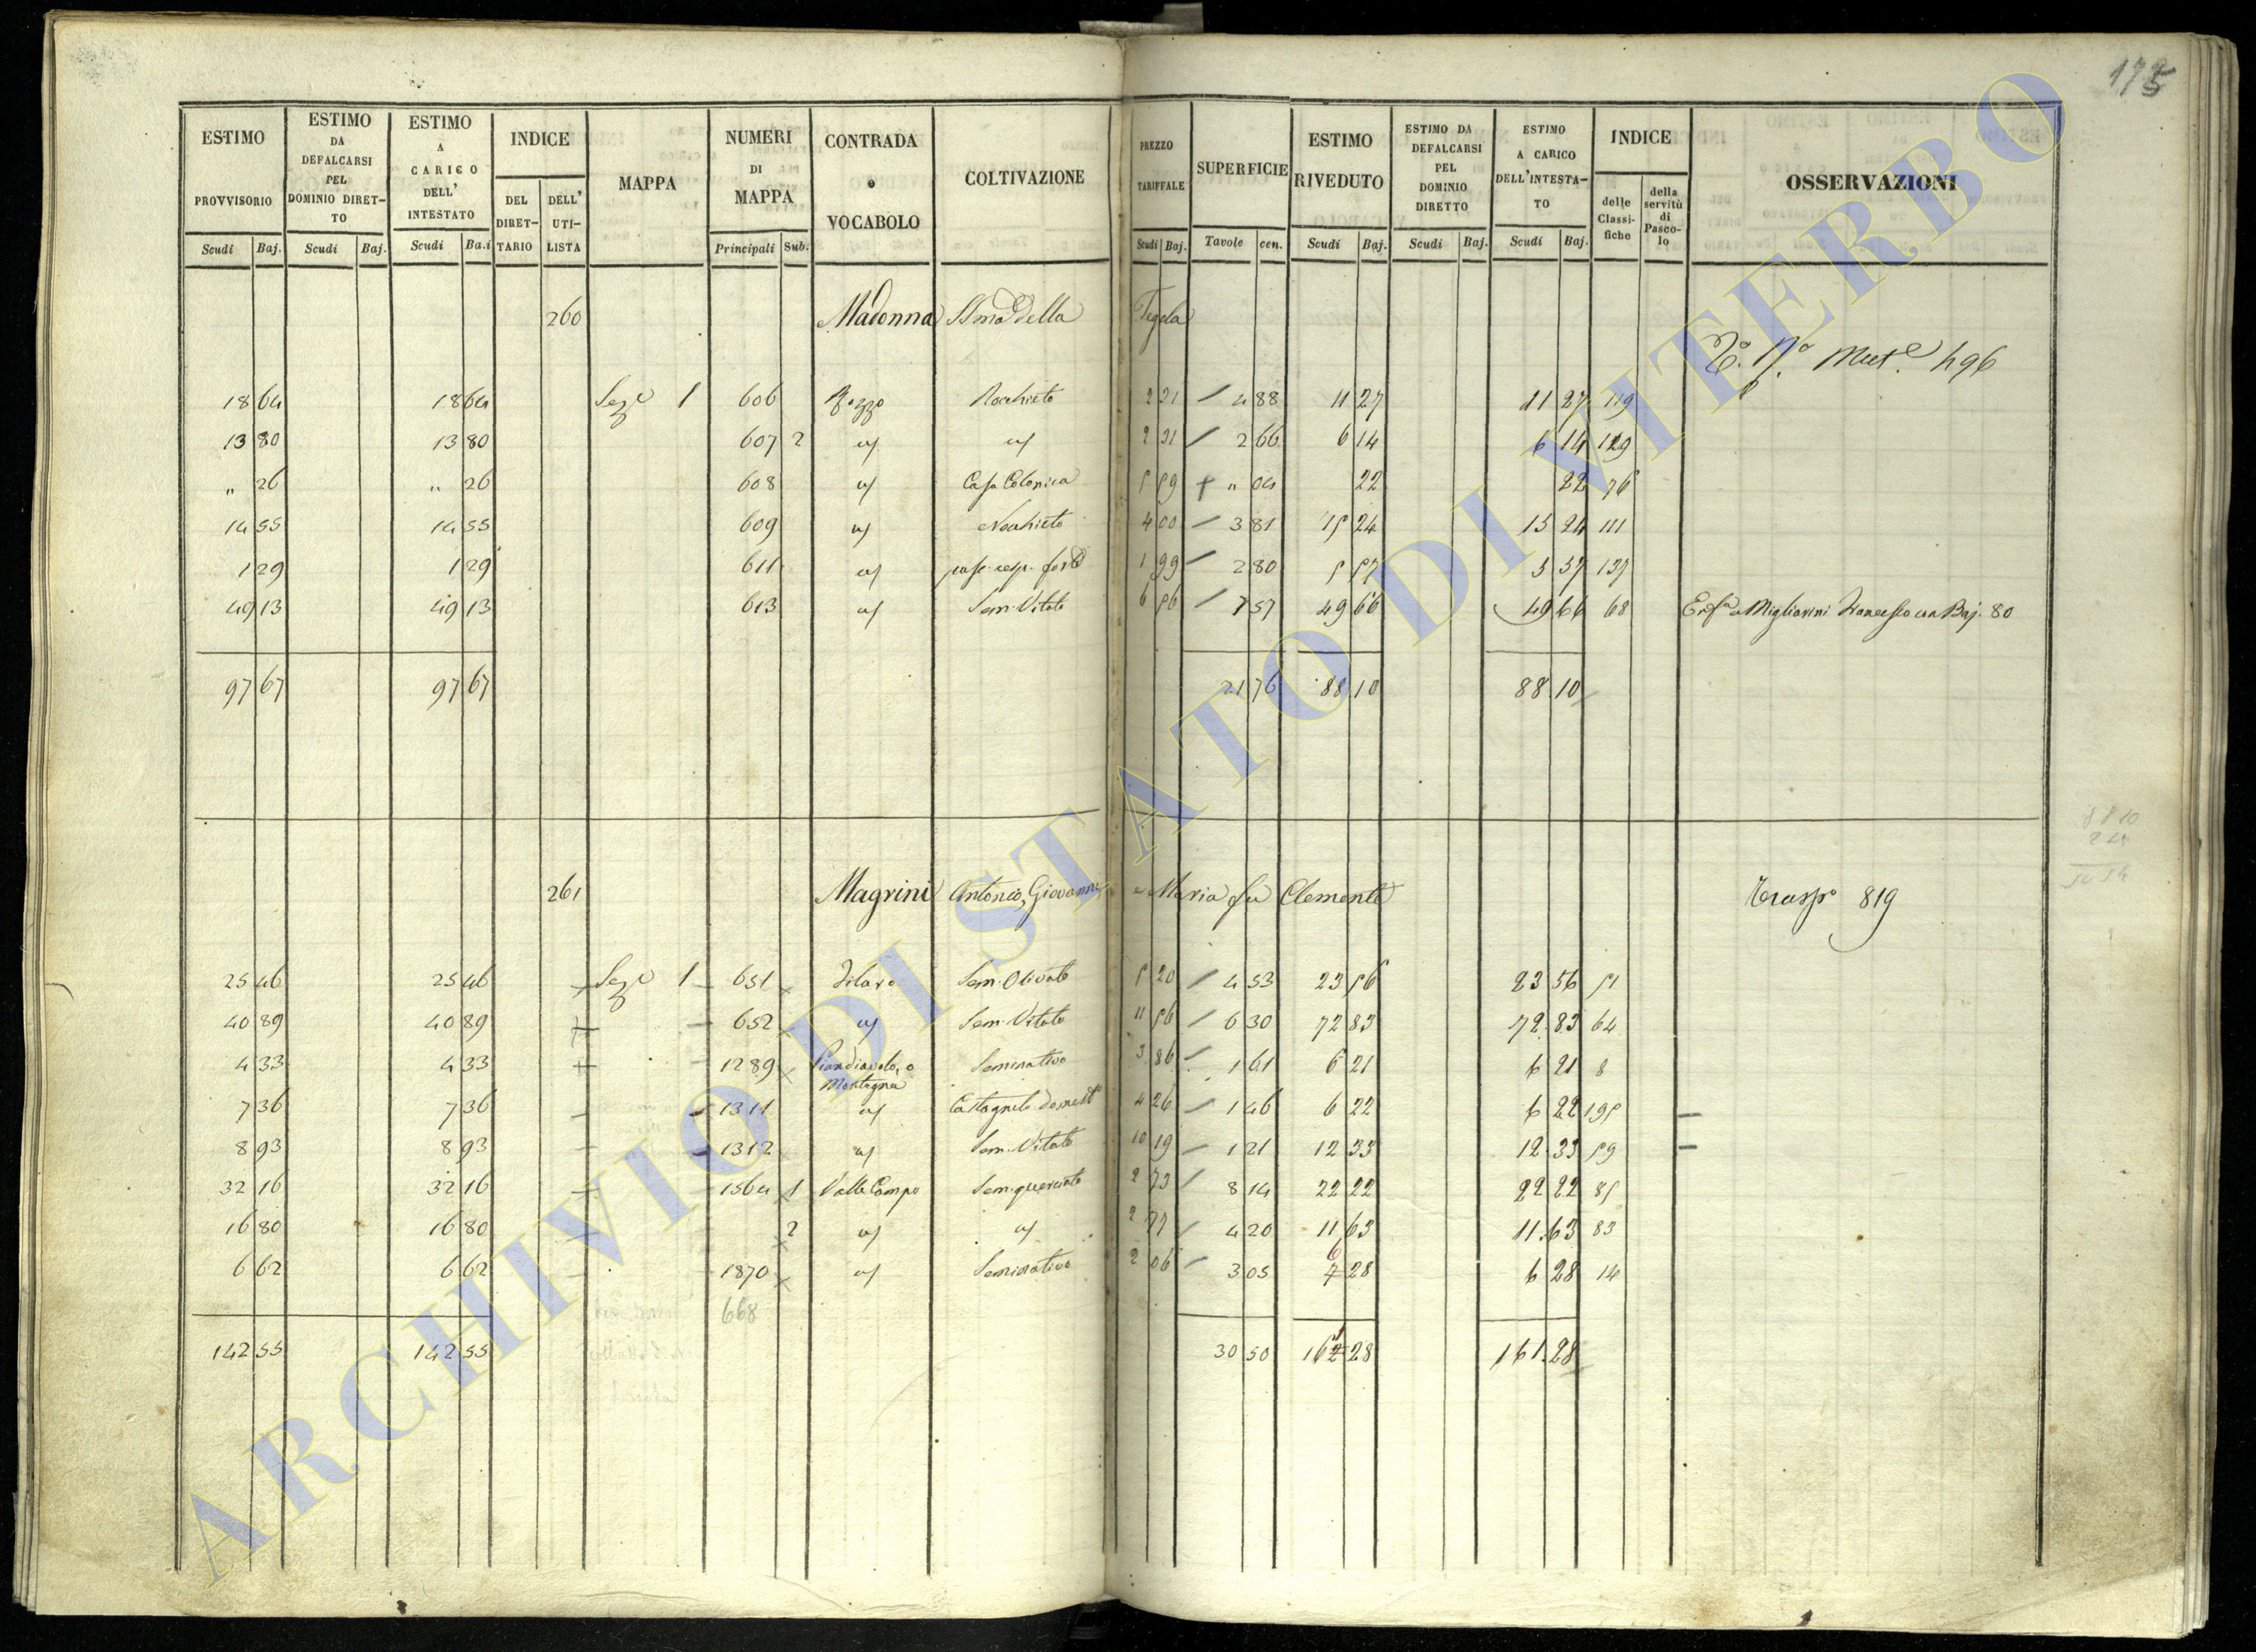 175
ESTIMO PROVVISORIO Scudi Baj. ESTIMO DA DEFALCARSI PEL DOMINIO DIRETTO Scudi Baj. ESTIMO A CARICO DELL' INTESTATO Scudi Ba.i INDICE DEL DIRETTARIO DELL' UTILISTA MAPPA NUMERI DI MAPPA Principali Sub. CONTRADA o VOCABOLO COLTIVAZIONE PREZZO TARIFFALE Scudi Baj. SUPERFICIE Tavole cen. ESTIMO RIVEDUTO Scudi Baj. ESTIMO DA DEFALCARSI PEL DOMINIO DIRETTO Scudi Baj. ESTIMO A CARICO DELL'INTESTATO Scudi Baj. INDICE delle Classifiche della servitù di Pascolo OSSERVAZIONI
260 Madonna SSma della Tegola
496
18 64 18 64 Sez.e 1 606 Pozzo Nocchieto 2 31 4 88 11 27 11 27 119
13 80 13 80 607 2 2 31 2 66 6 14 6 14 129
" 26 " 26 608 Casa Colonica 5 59 " 04 22 22 76
14 55 14 55 609 Nocchieto 4 00 3 81 15 24 15 24 111
1 29 1 29 611 1 99 2 80 5 57 5 57 137
49 13 49 13 613 Sem. Vitato 6 56 7 57 49 66 49 66 68 Migliorini Francesco Baj. 80
97 67 97 67 21 76 88 10 88 10
88 10
261 Magrini Antonio, Giovanni e Maria fu Clemente Trasp.o 819
25 46 25 46 Sez.e 1 651 Sem. Olivato 5 20 4 53 23 56 23 56 51
40 89 40 89 652 Sem. Vitato 11 56 6 30 72 83 72 83 64
4 33 4 33 1289 Piandiavolo, o Montagna Seminativo 3 86 1 61 6 21 6 21 8
7 36 7 36 1311 Castagneto domest.o 4 26 1 46 6 22 6 22 195
8 93 8 93 1312 Sem. Vitato 10 19 1 21 12 33 12 33 59
32 16 32 16 1564 1 Valle Campo Sem. querciato 2 73 8 14 22 22 22 22 85
16 80 16 80 2 2 77 4 20 11 63 11 63 83
6 62 6 62 1870 Seminativo 2 06 3 05 6 28 6 28 14
668
142 55 142 55 30 50 161 28 161 28
ARCHIVIO DI STATO DI VITERBO